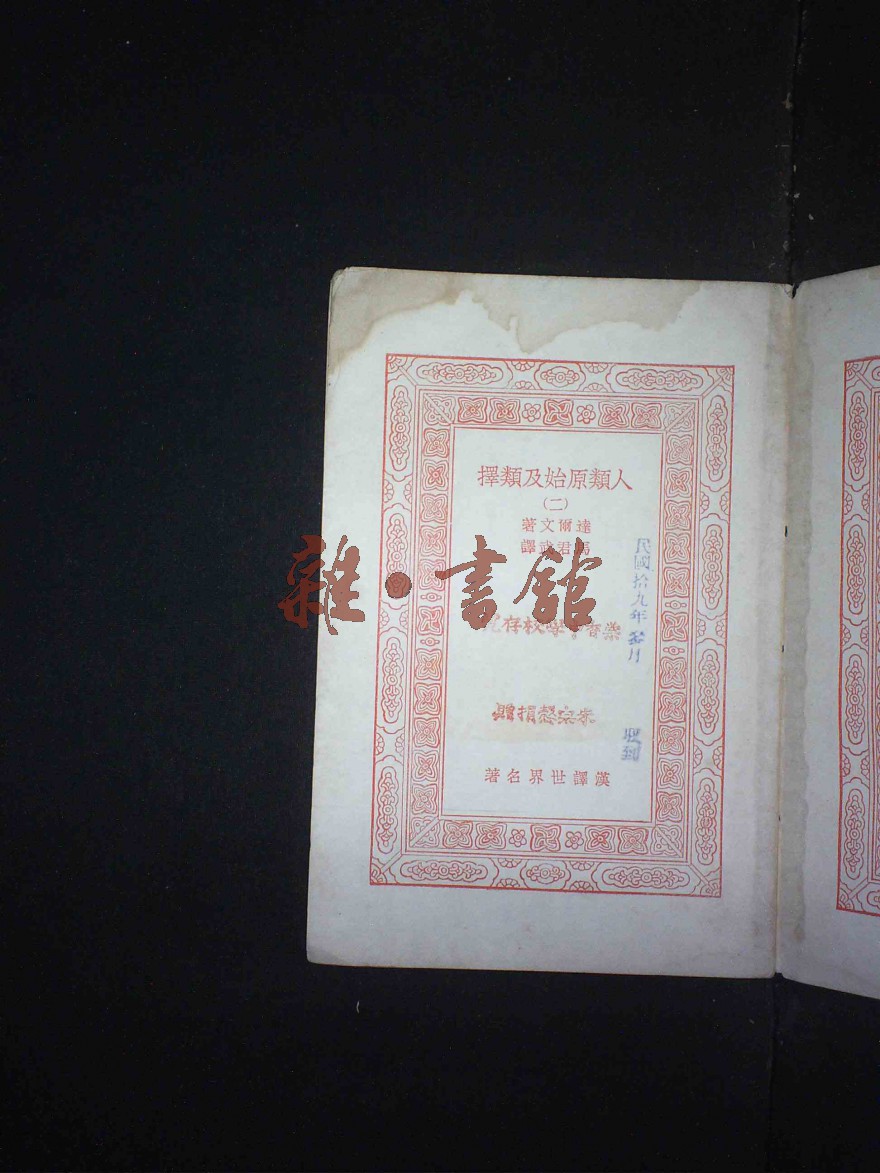 人類原始及類擇
（二）
達爾文著
馬君武譯
雜·書館
學校存
捐贈
漢譯世界名著
民國拾九年 月
收到